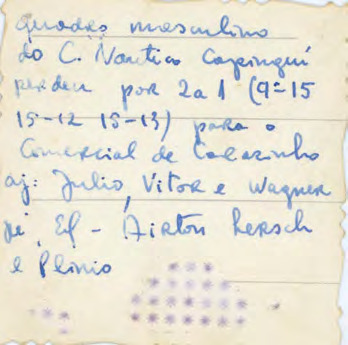 quadro masculino
do C. Nautico Capinguí
perdeu por 2 a 1 (9-15
15-12 15-13) para o
Comercial de Carazinho
aj: Julio, Vitor e Wagner
Ef - Airton Lersch
e Plinio